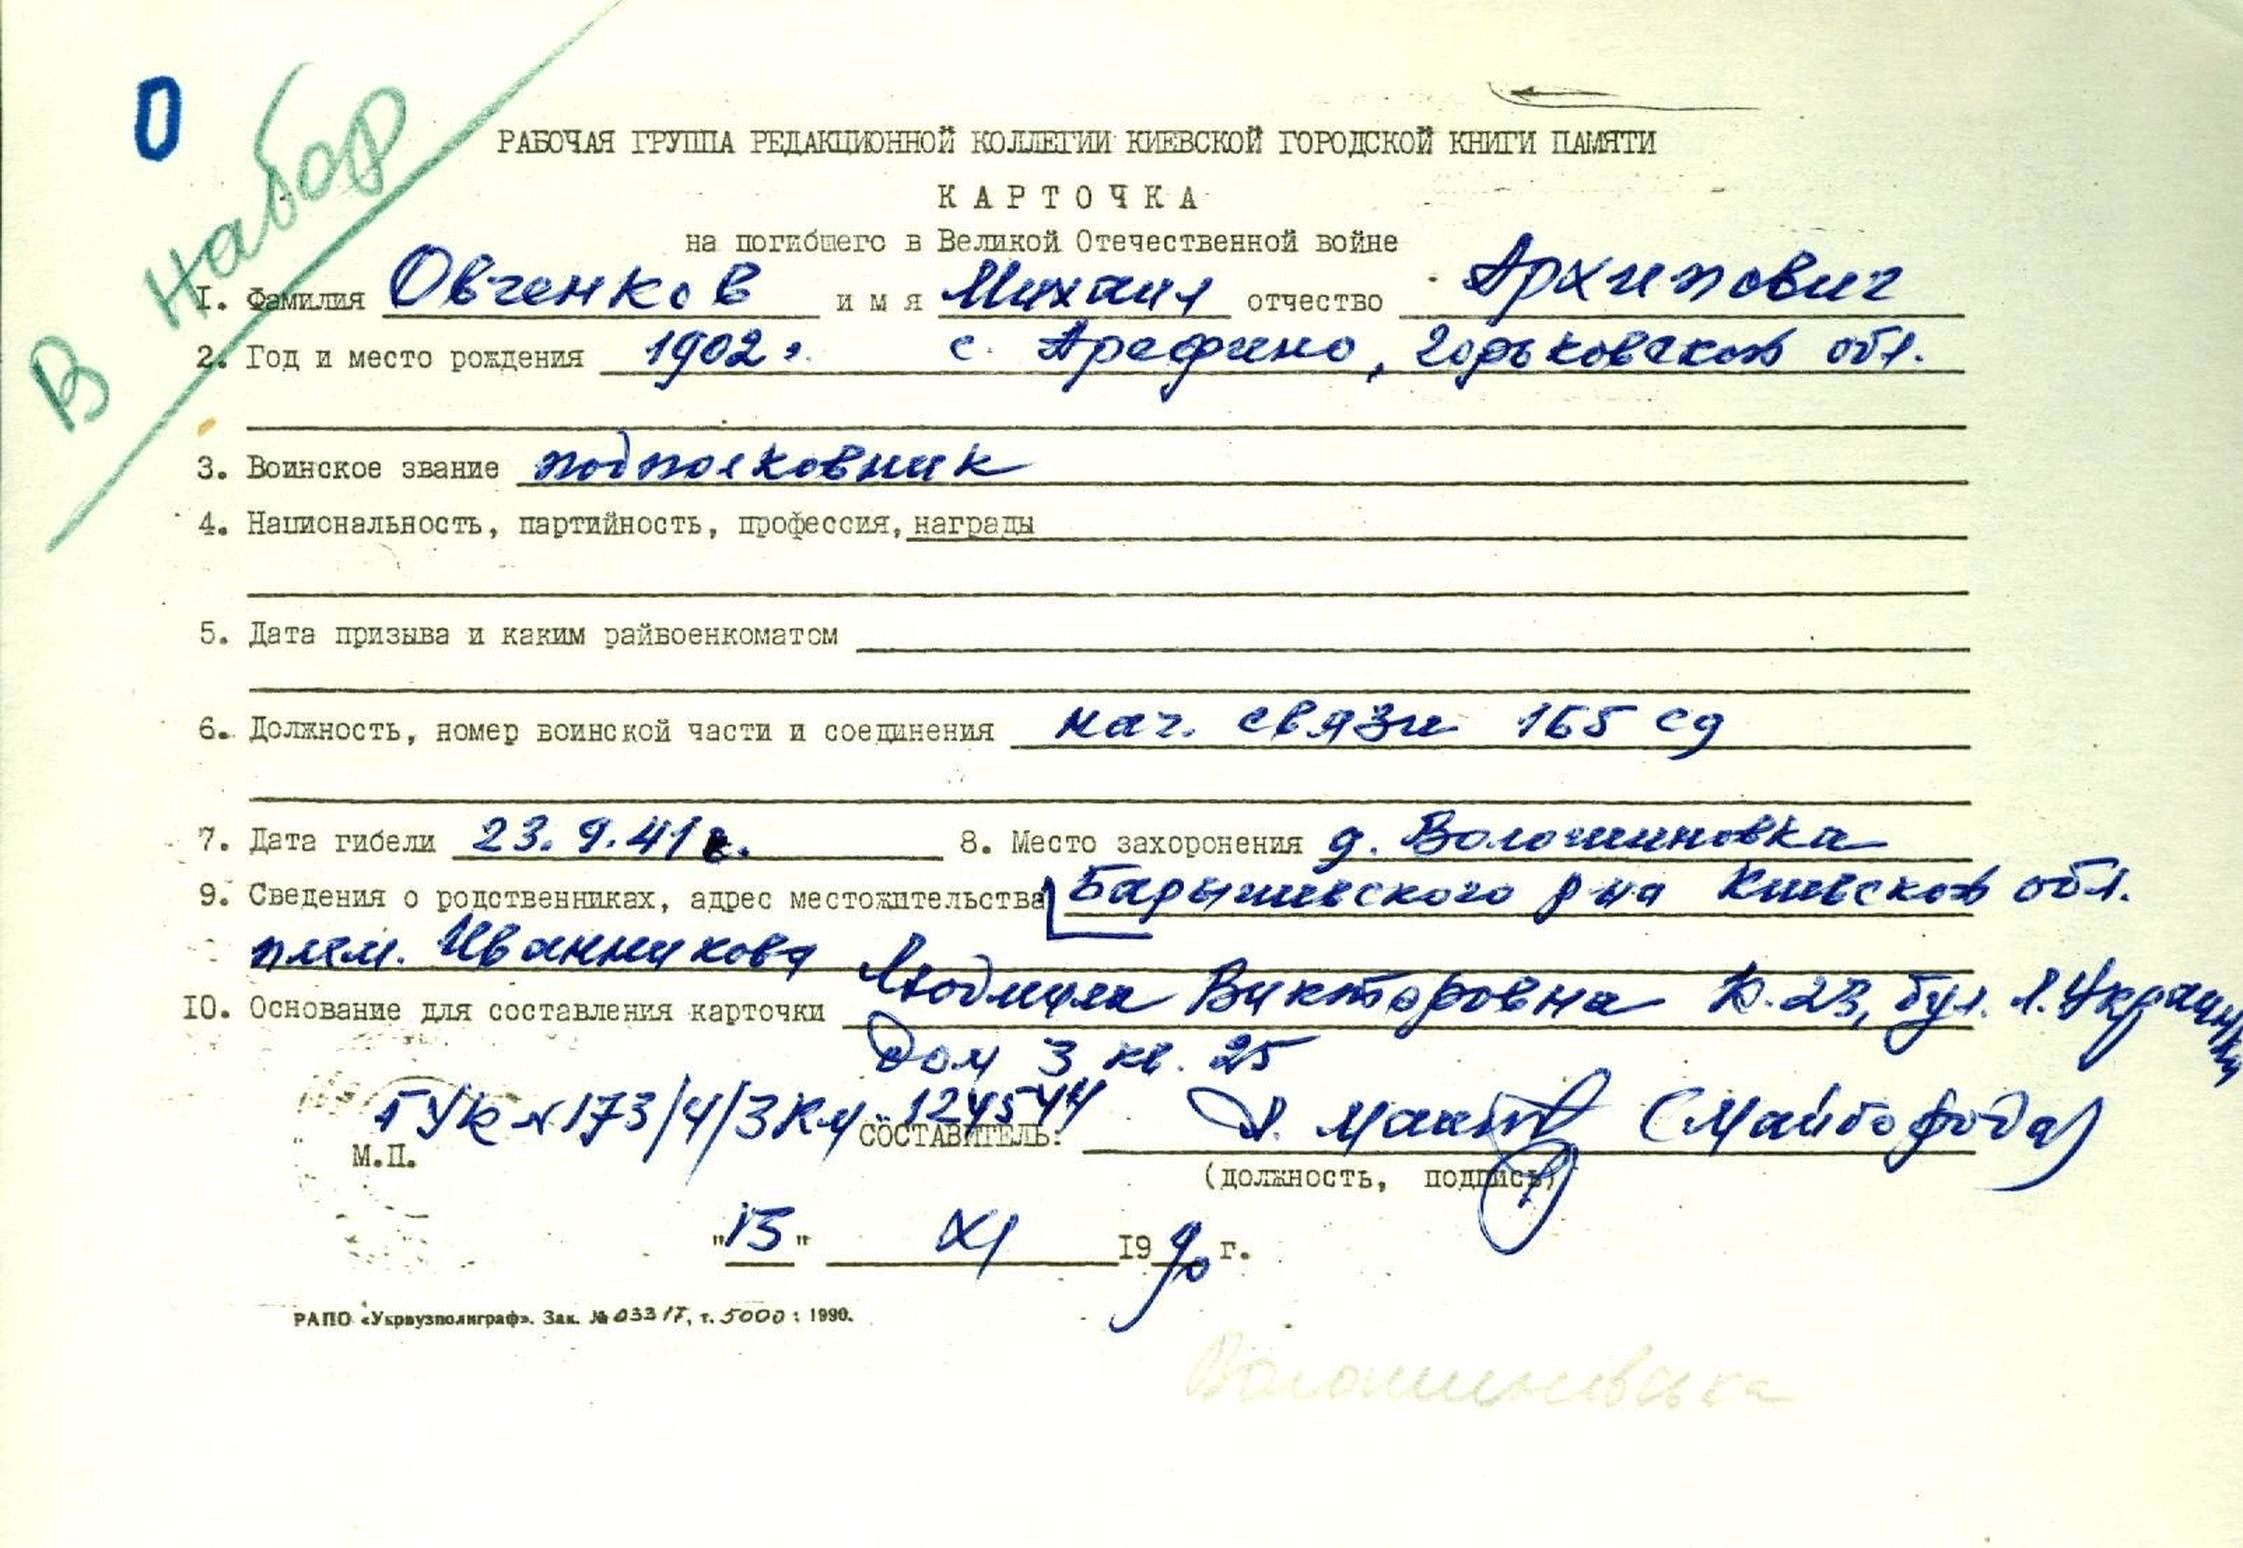 О
В набор
РАБОЧАЯ ГРУППА РЕДАКЦИОННОЙ КОЛЛЕГИИ КИЕВСКОЙ ГОРОДСКОЙ КНИГИ ПАМЯТИ
КАРТОЧКА
на погибшего в Великой Отечественной войне
1. Фамилия Овченков имя Михаил отчество Архипович
2. Год и место рождения 1902 г. с. Арефино, Горьковской обл.
3. Воинское звание подполковник
4. Национальность, партийность, профессия, награды
5. Дата призыва и каким райвоенкоматом
6. Должность, номер воинской части и соединения нач. связи 165 сд
7. Дата гибели 23.9.41 г. 8. Место захоронения д. Волошиновка
9. Сведения о родственниках, адрес местожительства Барышевского р-на Киевской обл.
плем. Иванникова Людмила Викторовна К.23, бул. Л. Украинки
10. Основание для составления карточки
Дом 3 кв. 25
ГУК №173/4/3КМ-124544
М.П. СОСТАВИТЕЛЬ: (Майборода)
(должность, подпись)
"15" XI 1990 г.
РАПО «Укрвузполиграф». Зак. № 033 17, т. 5000 : 1990.